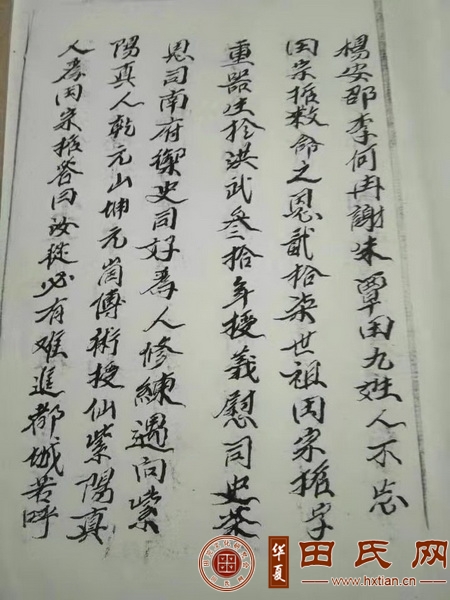 楊安邵李何冉謝朱覃田九姓人不忘
田宗振救命之恩貳拾柒世祖田宗振字
重器生於洪武叁拾年授義慰司史茶
恩司南府禦史同好為人修練遇向紫
陽真人乾元山坤元崗傳術授仙紫陽真
人為田宗振答曰汝從必有难進都城若呼
華夏
田氏网
www.hxtian.cn